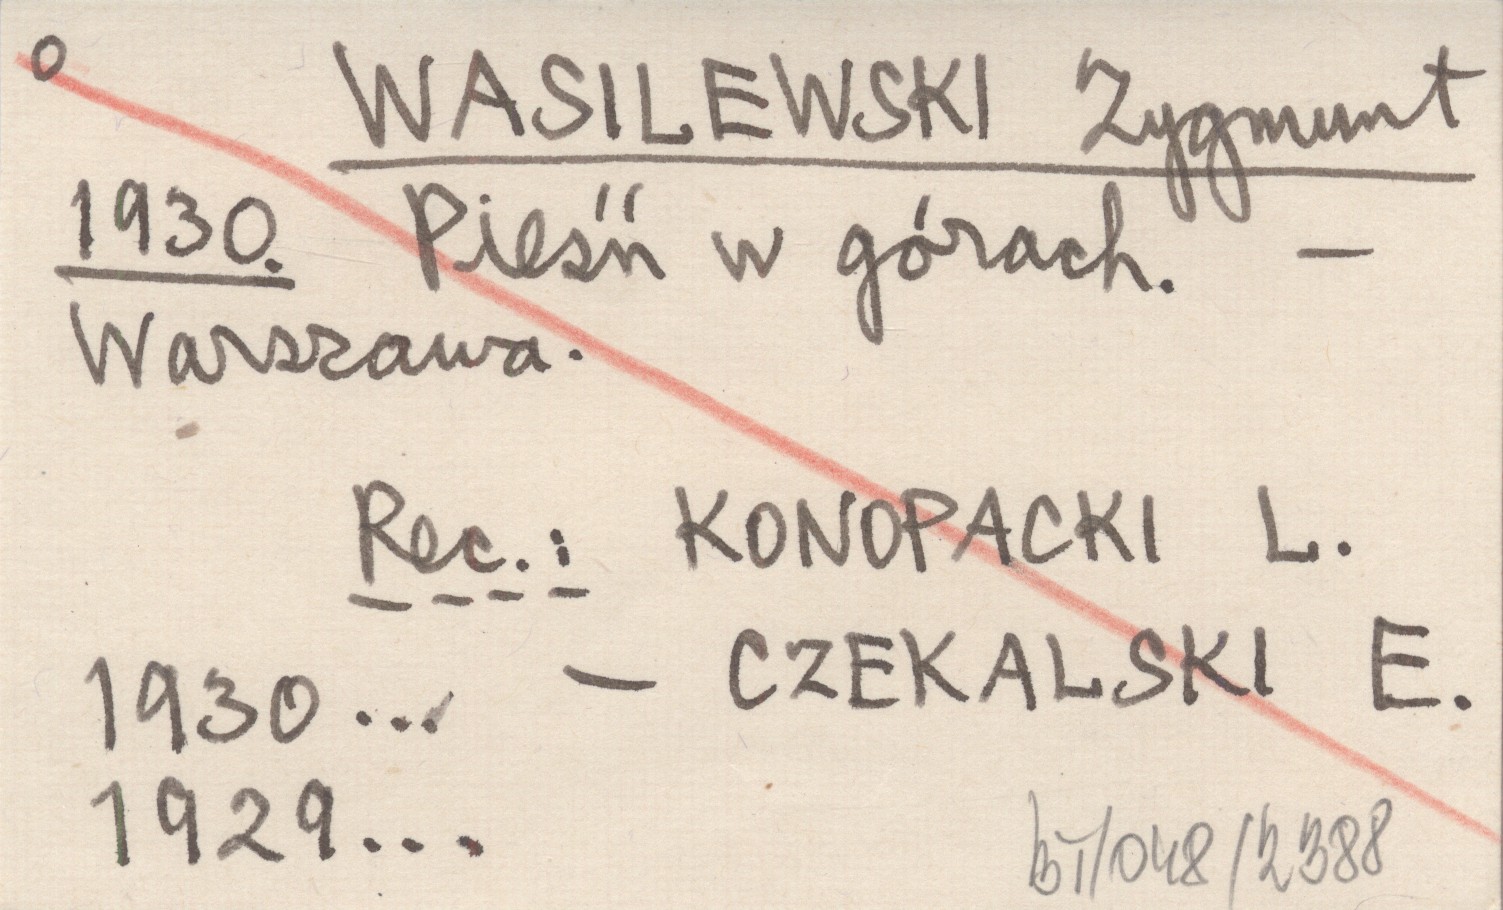 o WASILEWSKI Zygmunt
1930. Pieśń w górach. —
Warszawa.
Rec.: KONOPACKI L.
— CZEKALSKI E.
1930...
1929...
BT/048/2388